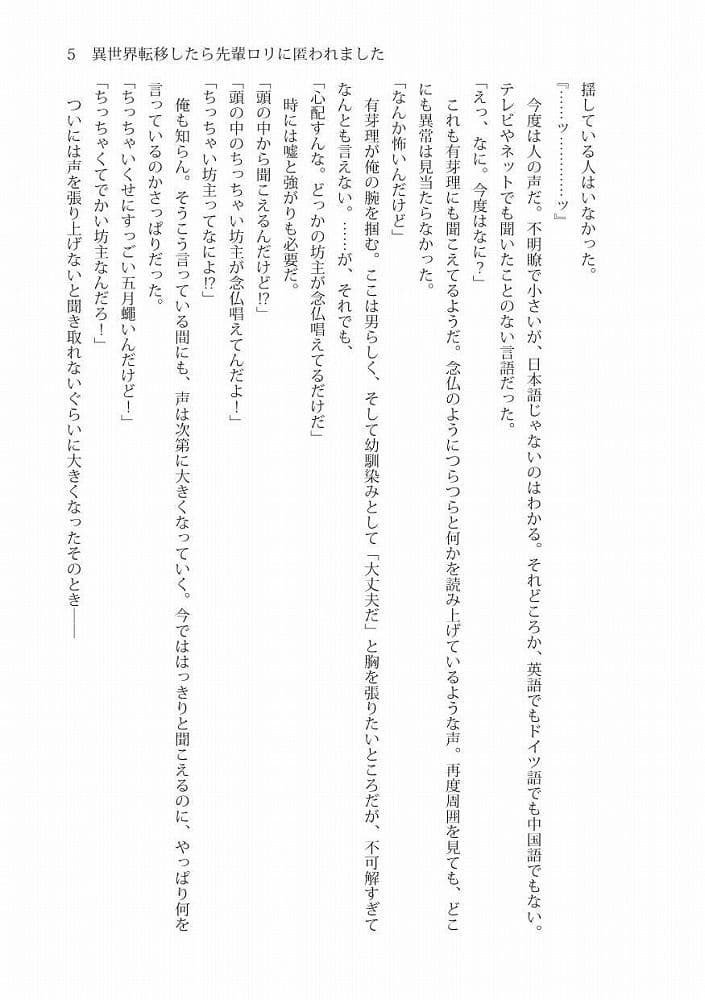 5　異世界転移したら先輩ロリに匿われました
揺している人はいなかった。
『……ッ…………ッ』
　今度は人の声だ。不明瞭で小さいが、日本語じゃないのはわかる。それどころか、英語でもドイツ語でも中国語でもない。
テレビやネットでも聞いたことのない言語だった。
「えっ、なに。今度はなに？」
　これも有芽理にも聞こえてるようだ。念仏のようにつらつらと何かを読み上げているような声。再度周囲を見ても、どこ
にも異常は見当たらなかった。
「なんか怖いんだけど」
　有芽理が俺の腕を掴む。ここは男らしく、そして幼馴染みとして「大丈夫だ」と胸を張りたいところだが、不可解すぎて
なんとも言えない。……が、それでも、
「心配すんな。どっかの坊主が念仏唱えてるだけだ」
　時には嘘と強がりも必要だ。
「頭の中から聞こえるんだけど⁉」
「頭の中のちっちゃい坊主が念仏唱えてんだよ！」
「ちっちゃい坊主ってなによ⁉」
　俺も知らん。そうこう言っている間にも、声は次第に大きくなっていく。今でははっきりと聞こえるのに、やっぱり何を
言っているのかさっぱりだった。
「ちっちゃいくせにすっごい五月蠅いんだけど！」
「ちっちゃくてでかい坊主なんだろ！」
　ついには声を張り上げないと聞き取れないぐらいに大きくなったそのとき――